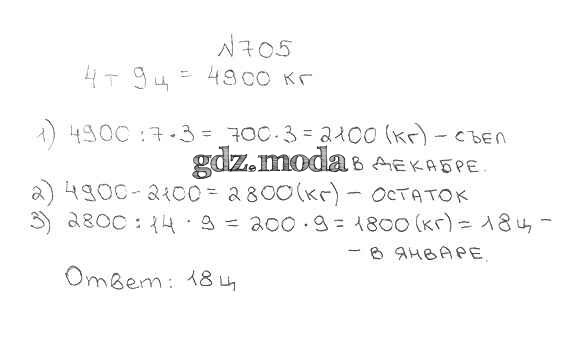 №705
4т 9ц = 4900 кг
1) 4900 : 7 · 3 = 700 · 3 = 2100 (кг) – съел
gdz.moda
в декабре.
2) 4900 – 2100 = 2800 (кг) – остаток
3) 2800 : 14 · 9 = 200 · 9 = 1800 (кг) = 18ц –
– в январе.
Ответ: 18ц